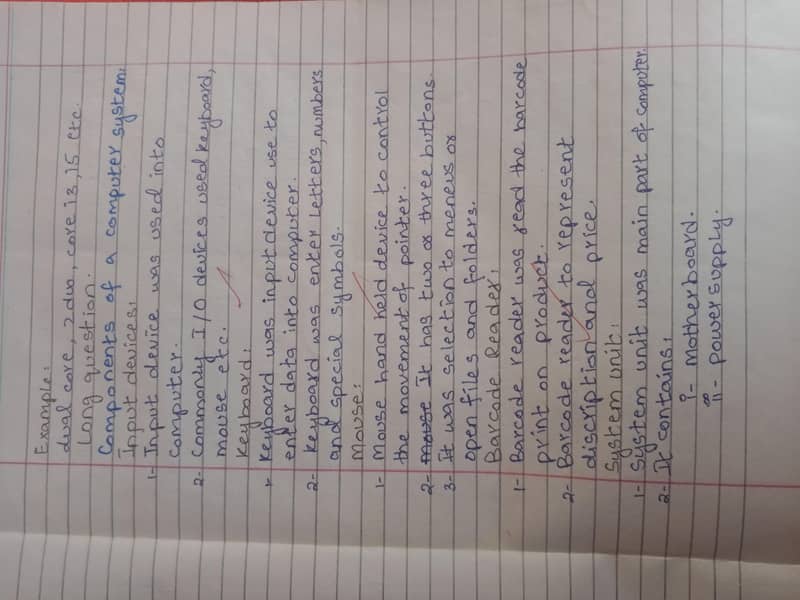 Example:
dual core, 2 duo, core i3, i5 etc.
Long question:
Components of a computer system:
Input devices:
1- Input device was used into
computer.
2- Commonly I/O devices used keyboard,
mouse etc.
Keyboard:
1- Keyboard was input device use to
enter data into computer.
2- Keyboard was enter letters, numbers
and special symbols.
Mouse:
1- Mouse hand held device to control
the movement of pointer.
2- mouse It has two or three buttons.
3- It was selection to meneus or
open files and folders.
Barcode Reader:
1- Barcode reader was read the barcode
print on product.
2- Barcode reader to represent
discription and price.
System unit:
1- System unit was main part of computer.
2- It contains:
i- motherboard.
ii- power supply.